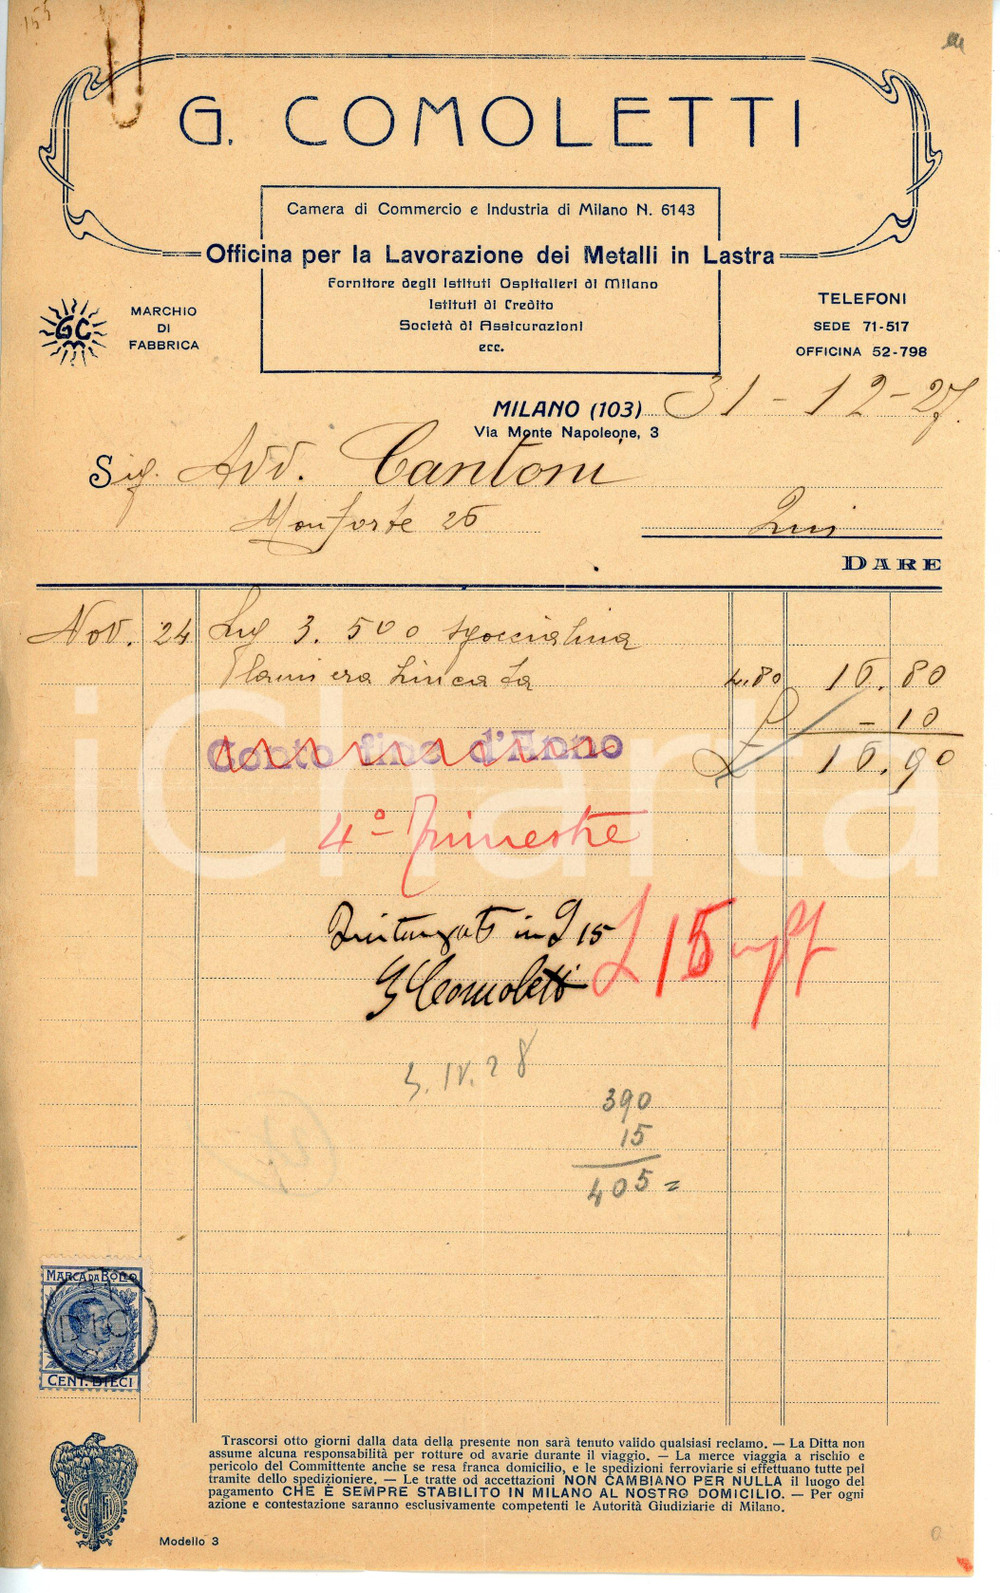 155
G. COMOLETTI
Camera di Commercio e Industria di Milano N. 6143
Officina per la Lavorazione dei Metalli in Lastra
Fornitore degli Istituti Ospitalieri di Milano
Istituti di Credito
Società di Assicurazioni
ecc.
GC
MARCHIO
DI
FABBRICA
TELEFONI
SEDE 71-517
OFFICINA 52-798
MILANO (103) 31-12-27.
Via Monte Napoleone, 3
Sig. Avv. Cantoni
Monforte 26
Qui
DARE
Nov. 24 3.500 sgocciatura
Lamiera zincata 4.80 16.80
-10
£ 16.90
Conto fine d'Anno
4° Trimestre
Quitanzato in £ 15
G Comoletti
£ 15
3.IV.28
390
15
405=
MARCA DA BOLLO
DIC
CENT. DIECI
Trascorsi otto giorni dalla data della presente non sarà tenuto valido qualsiasi reclamo. — La Ditta non
assume alcuna responsabilità per rotture od avarie durante il viaggio. — La merce viaggia a rischio e
pericolo del Committente anche se resa franca domicilio, e le spedizioni ferroviarie si effettuano tutte pel
tramite dello spedizioniere. — Le tratte od accettazioni NON CAMBIANO PER NULLA il luogo del
pagamento CHE È SEMPRE STABILITO IN MILANO AL NOSTRO DOMICILIO. — Per ogni
azione e contestazione saranno esclusivamente competenti le Autorità Giudiziarie di Milano.
Modello 3
iCharta